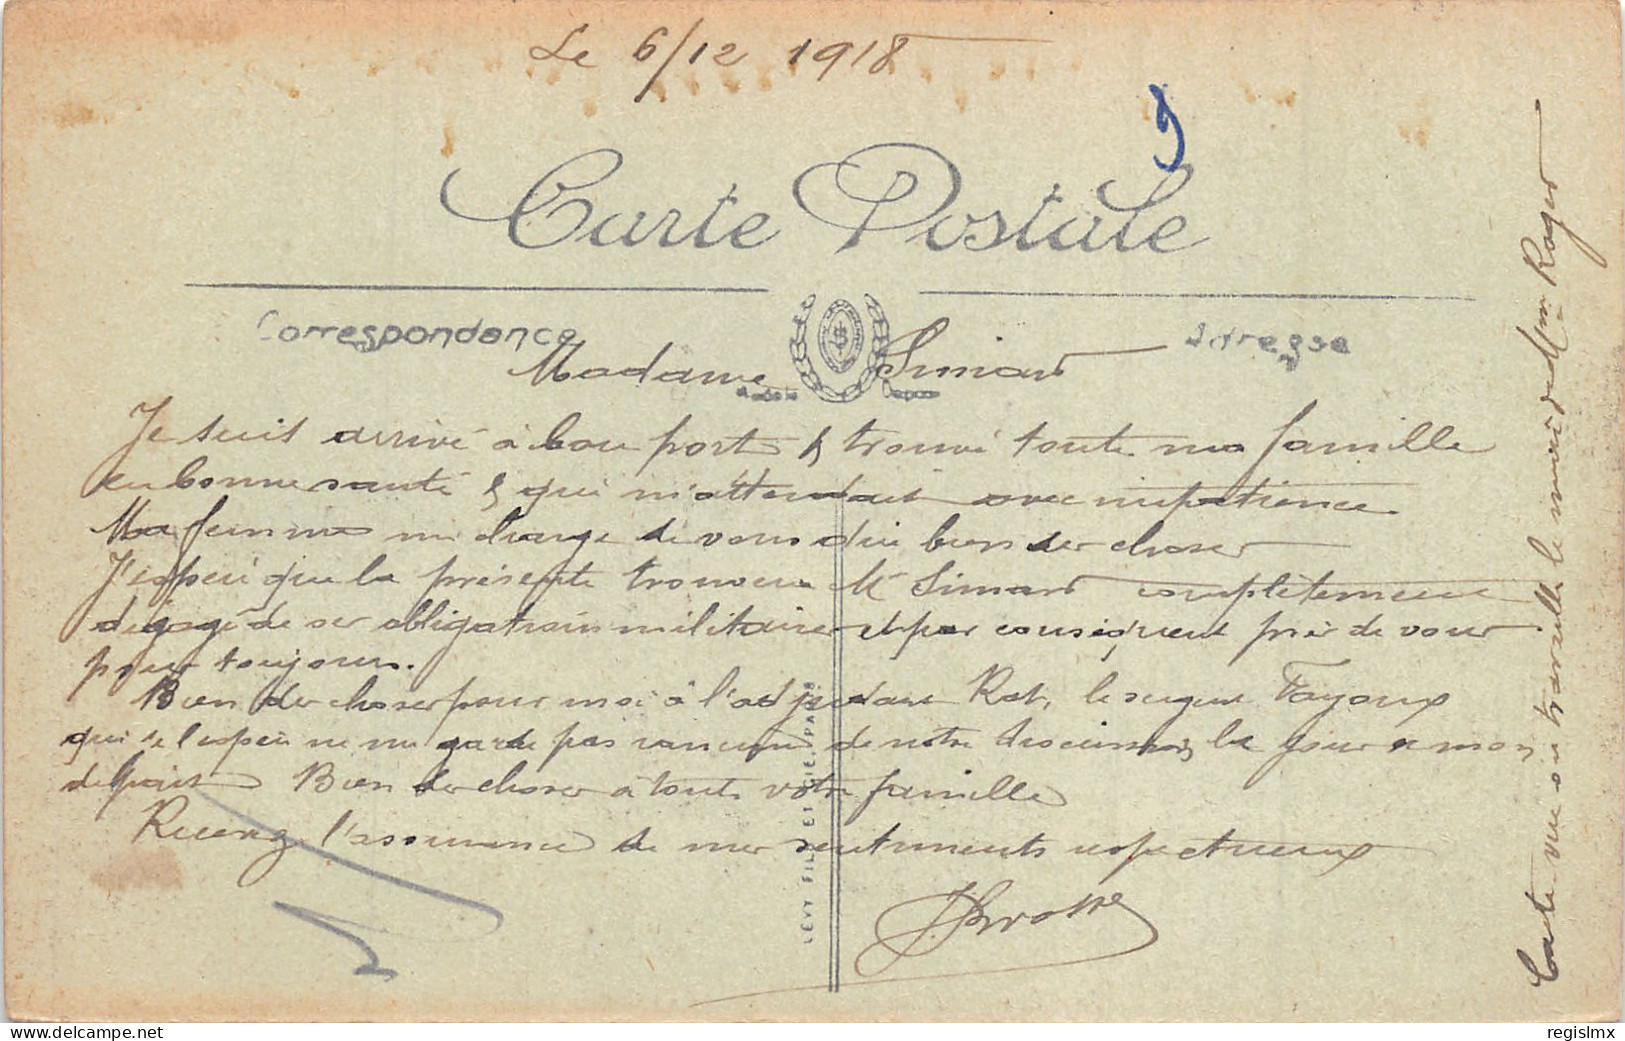 Le 6/12 1918
Carte Postale
Correspondance
Adresse
Madame Simard
Je suis arrivé à bon port & trouvé toute ma famille
en bonne santé & qui m'attendait avec impatience.
Ma femme me charge de vous dire bien des choses
J'espère que la présente trouvera Mr Simard complètement
dégagé de ses obligations militaires et par conséquent près de vous
pour toujours.
Bien des choses pour moi à l'adjudant Rat, le sergent Fayoux
qui je l'espère ne me garde pas rancune de notre discussion, le jour de mon
départ Bien des choses à toute votre famille
Recevez l'assurance de mes sentiments respectueux
J. Brosse
Carte vue où travaille le mari de Mme Roger
LEVY FILS ET CIE. PARIS
regislmx